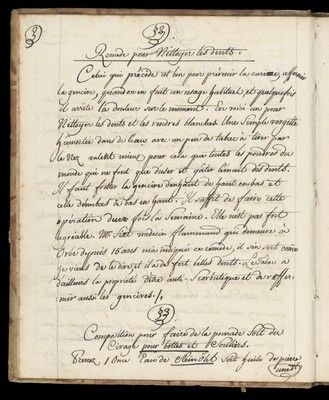 52.
Remede pour Nettoyer les dents.
Celui qui précède est bon pour prévenir la carie, affermir
la gencive, quand on en fait un usage habituel, et quelquefois
il arrête la douleur sur le moment. En voici un pour
Nettoyer les dents et les rendres blanches. Une Simple
humectée dans de l'eau avec un peu de tabac à tirer par
le Nez vaudra mieux pour cela que toutes les poudres du
monde qui ne font que d'user et gâter l'émail des dents.
Il faut frotter la gencive d'enhaut de haut en bas et
celle d'enbas de bas en haut. Il suffit de faire cette
opération deux fois la Semaine. Elle n'est pas fort
agréable. Mr. médecin flammand qui demeure à
depuis 15 ans m'a indiqué ce remède, il s'en sert comme
je viens de le dire et il a de fort belles dents. Le tabac a
d'ailleurs la propriété d'être anti-Scorbutique et de raffer-
mir aussi les gencives./.
53.
Composition pour faire de la pommade Soit du
Cirage pour bottes et Souliers.
Prenez 1 Once Eau de Steinöhl Soit huile de pierre